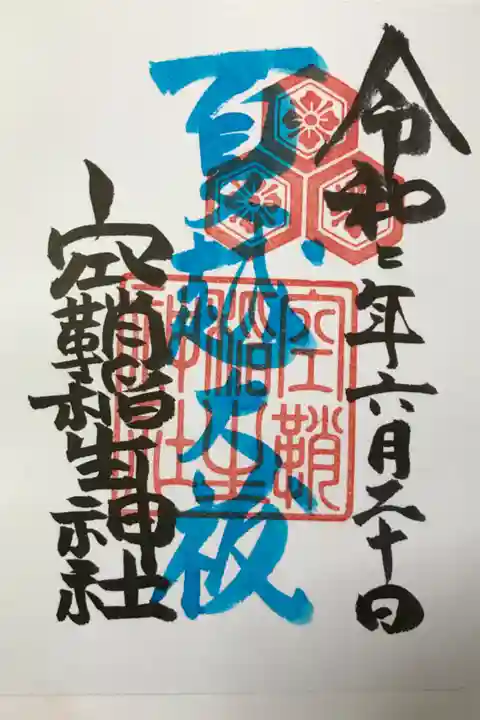 令和二年六月三十日
夏越大祓
空鞘稲生神社
空鞘
稲生
神社